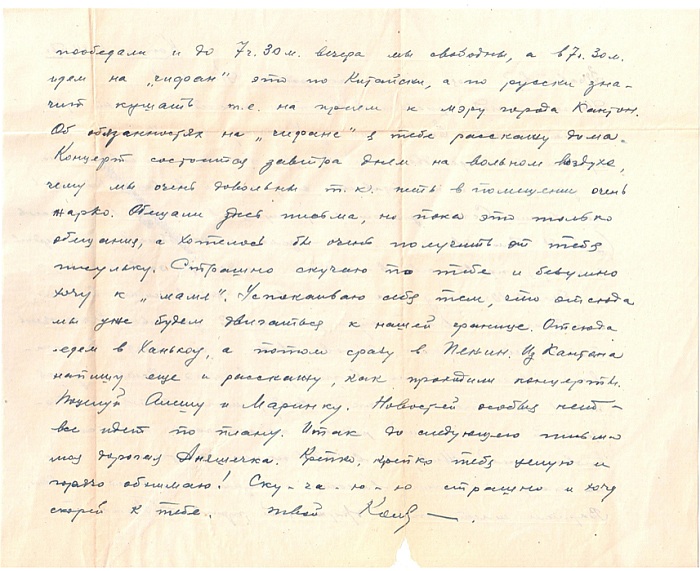 пообедали и до 7 ч. 30 м. вечера мы свободны, а в 7 ч. 30 м.
идем на „чифан" это по Китайски, а по русски зна-
чит кушать т.е. на прием к мэру города Кантон.
Об обязанностях на „чифане" я тебе расскажу дома.
Концерт состоится завтра днем на вольном воздухе,
чему мы очень довольны т.к. петь в помещении очень
жарко. Обещали здесь письма, но пока это только
обещания, а хотелось бы очень получить от тебя
писульку. Страшно скучаю по тебе и безумно
хочу к „маме". Успокаиваю себя тем, что отсюда
мы уже будем двигаться к нашей границе. Отсюда
едем в Ханькоу, а потом сразу в Пекин. Из Кантона
напишу еще и расскажу, как проходили концерты.
Поцелуй Алешу и Маринку. Новостей особых нет –
все идет по плану. Итак до следующего письма
моя дорогая Крепко, крепко тебя целую и
горячо обнимаю! Ску-ча-ю-ю страшно и хочу
скорей к тебе. твой